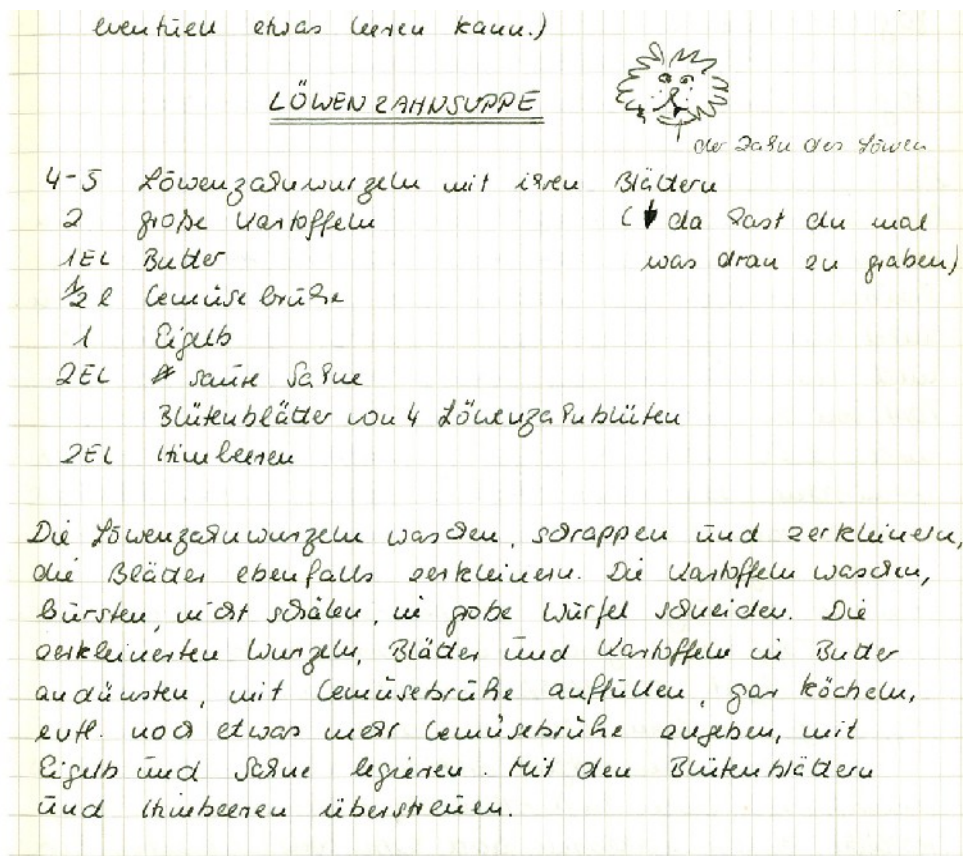 eventuell etwas leeren kann.)
LÖWENZAHNSUPPE
der Zahn des Löwen
4-5 Löwenzahnwurzeln mit ihren Blättern
2 große Kartoffeln (da hast du mal
1EL Butter was dran zu graben)
1/2 l Gemüsebrühe
1 Eigelb
2EL saure Sahne
Blütenblätter von 4 Löwenzahnblüten
2EL Himbeeren
Die Löwenzahnwurzeln waschen, schrappen und zerkleinern,
die Blätter ebenfalls zerkleinern. Die Kartoffeln waschen,
bürsten, nicht schälen, in grobe Würfel schneiden. Die
zerkleinerten Wurzeln, Blätter und Kartoffeln in Butter
andünsten, mit Gemüsebrühe auffüllen, gar köcheln,
evtl. noch etwas mehr Gemüsebrühe angeben, mit
Eigelb und Sahne legieren. Mit den Blütenblättern
und Himbeeren überstreuen.